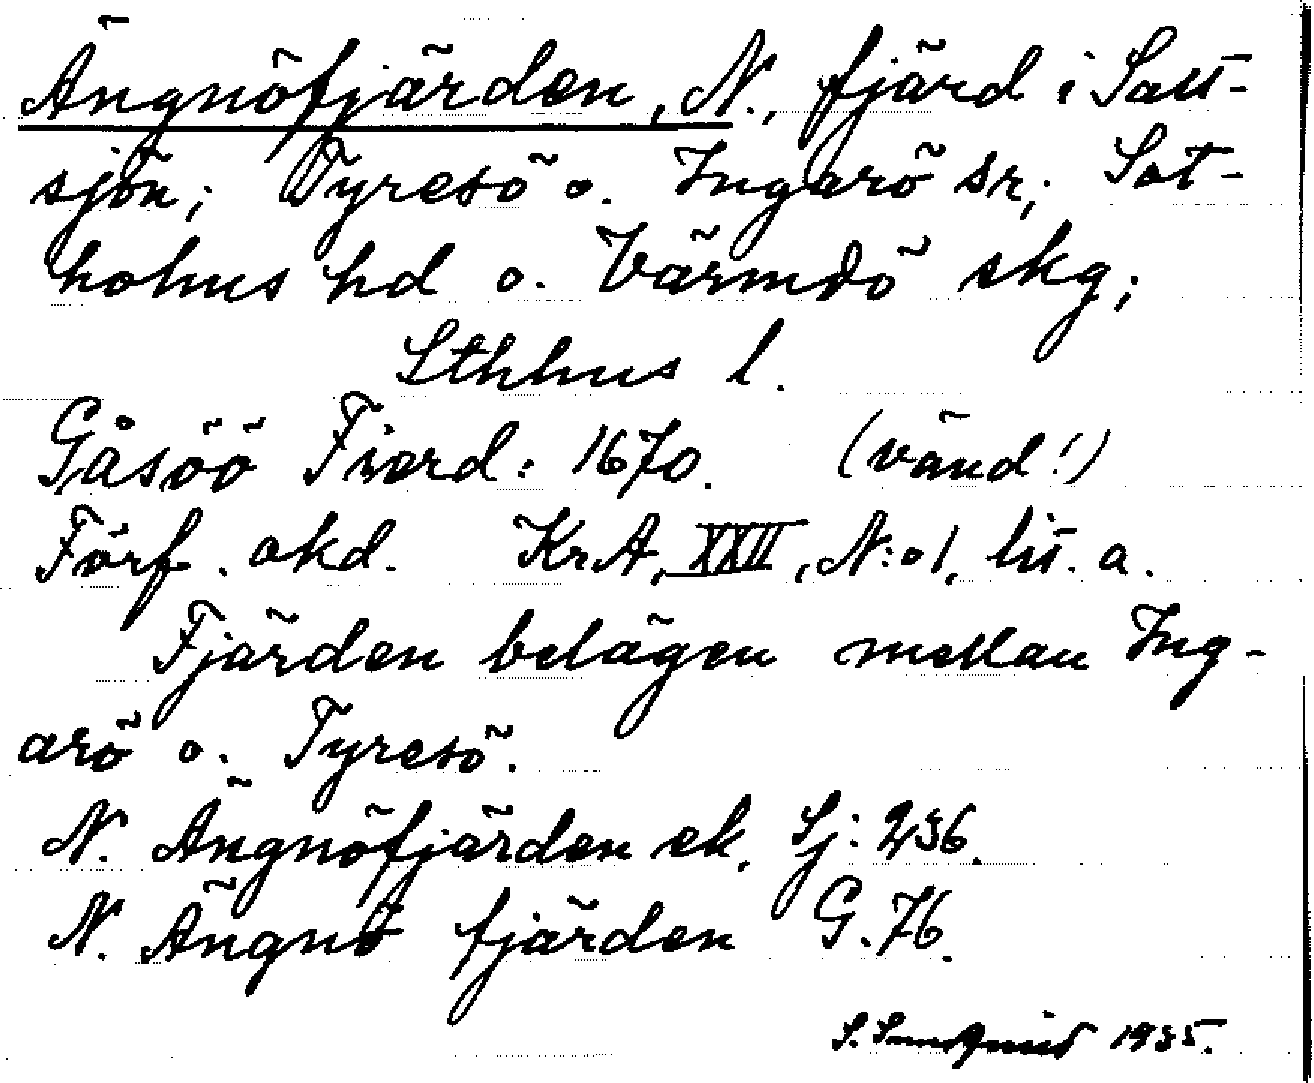 Ängnöfjärden, N., fjärd i Salt-
sjön; Tyresö o. Ingarö sn; Sot-
holms hd o. Värmdö skg;
Sthlms l.
Gåsöö Fiard: 1670. (vänd!)
Förf. okd. KrA, XXII, N:o 1, lit. a.
Fjärden belägen mellan Ing-
arö o. Tyresö.
N. Ängnöfjärden ek. Sj: 236.
N. Ängnö fjärden G. 76.
1935.